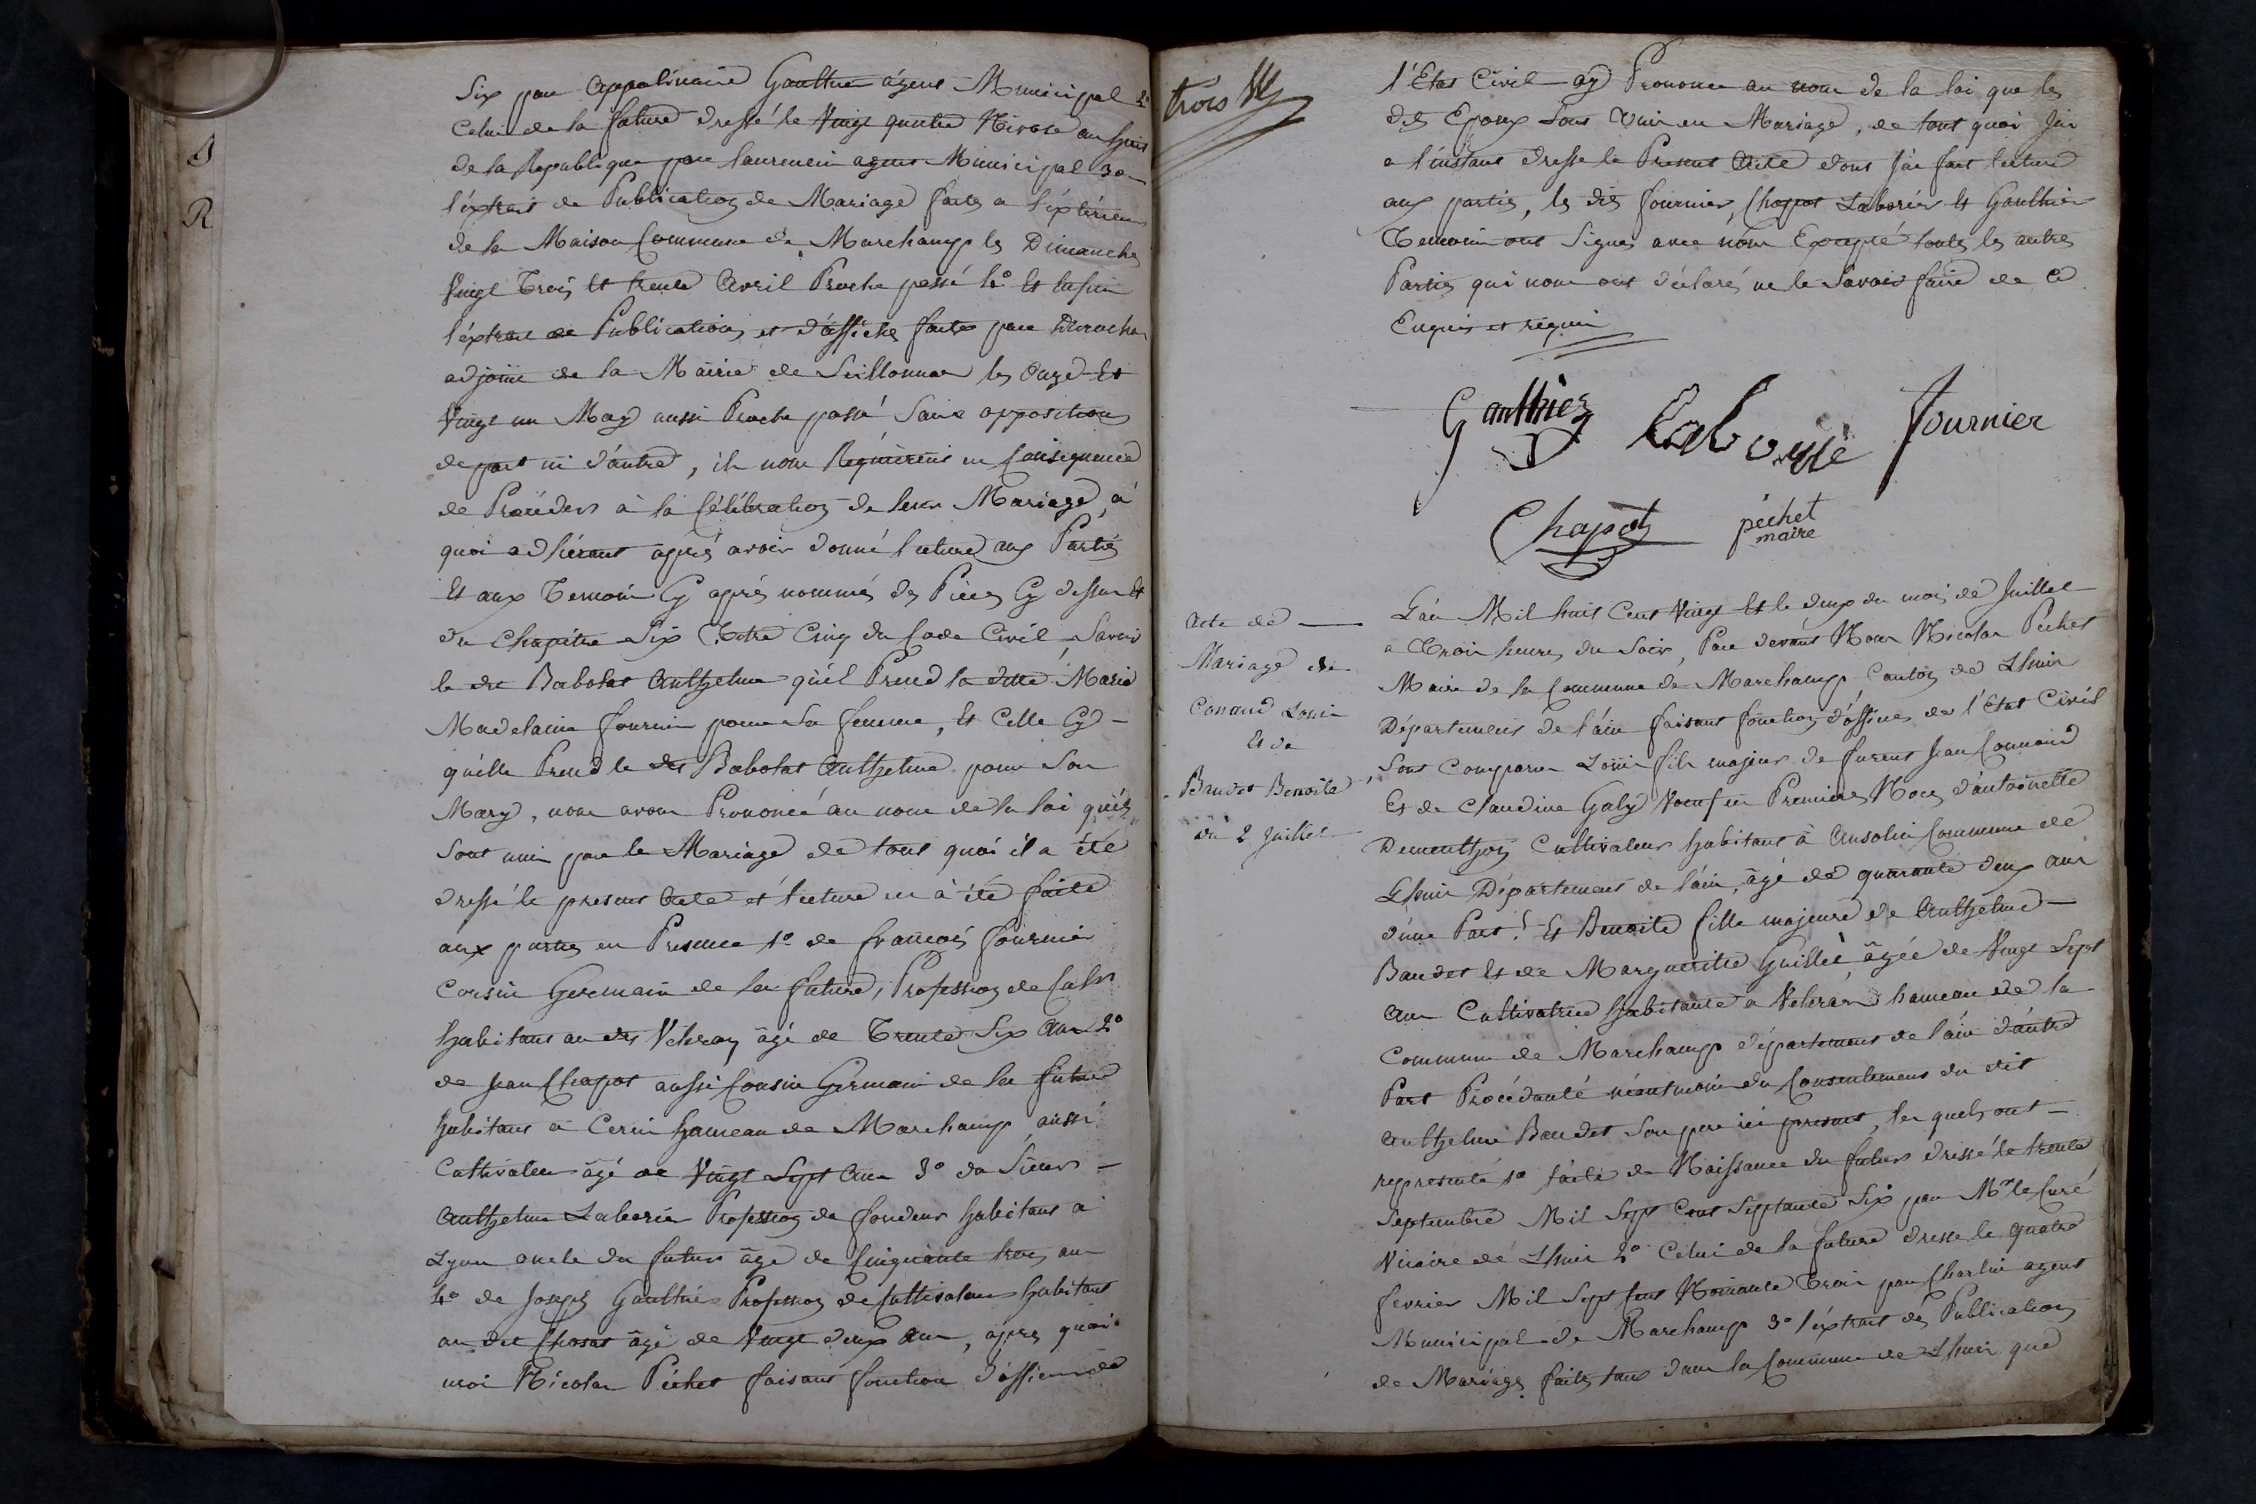 Six par Appolinaire Gaulthier ágent Municipal 2°
Celui de la future dressé le Vingt quatre Nivose an huit
de la Republique par laurencin agent Municipal 3°
l'éxtrait de Publication de Mariage faites a l'éxtérieur
de la Maison Commune de Marchamp les Dimanches
Vingt Trois et trente Avril Proche passé 4° Et enfin
l'éxtrait de Publication et d'affiches faites par
adjoint de la Mairie de Seillonnas les Onze Et
Vingt un May aussi Proche passé Sans opposition
de part ni d'autre, ils nous Requierent en Consequence
de Procéder à la Célébration de leur Mariage, à
quoi adhérant après avoir donné lecture aux Parties
Et aux Temoins Cy après nommés des Pièces Cy dessus Et
du Chapitre Six Titre Cinq du Code Civil, Savoir
le dit Babolat Anthelme qu'il Prend la ditte Marie
Madelaine fournier pour Sa femme, Et Celle Cy
qu'elle Prend le dit Babolat Anthelme pour Son
Mary, nous avons Prononcé au nom de la loi qu'ils
Sont unis par le Mariage de tout quoi il a été
dressé le present Acte et lecture en à été faite
aux parties en Presence 1° de francois fournier
Cousin Germain de la future, Profession de Cultr
habitant au dit Veleray âgé de Trente Six Ans 2°
de Jean Chapot aussi Cousin Germain de la future
habitant à Cerin hameau de Marchamp aussi
Cultivateur âgé de Vingt Sept Ans 3° du Sieur
Anthelme Laborier Profession de fondeur habitant à
Lyon oncle du futur âgé de Cinquante trois ans
4° de Joseph Gaulthier Profession de Cultivateur habitant
au dit âgé de Vingt deux Ans, après quoi
moi Nicolas Péchet faisant fonction d'officier de
trois
l'Etat Civil ay Prononcé au nom de la loi que les
dits Epoux Sont Unis en Mariage, de tout quoi J'ai
a l'instant dressé le Present Acte dont J'ai fait lecture
aux parties, les dits fournier, Chapot Laborier et Gaulthier
Temoins ont Signés avec nous Excepté toutes les autres
Parties qui nous ont déclaré ne le Savoir faire de ce
Enquis et réquis
Gaulthier Laborié fournier
Chapot péchet
maire
Acte de
Mariage de
Conand Louis
Et de
Baudet Benoite
du 2 Juillet
L'an Mil huit Cent Vingt Et le deux du mois de Juillet
a Trois heures du Soir, Par devant Nous Nicolas Pechet
Maire de la Commune de Marchamp Canton de Lhuis
Département de l'ain faisant fonction d'officier de l'Etat Civil
Sont Comparus Louis fils majeur de furent Jean Connand
Et de Claudine Galy Voeuf en Premieres Noces d'antoinette
Dementhon Cultivateur habitant à Ansolin Commune de
Lhuis Département de l'ain, âgé de quarante deux ans
d'une Part; Et Benoite fille majeure de Anthelme
Baudet Et de Margueritte Guillet, âgée de Vingt Sept
Ans Cultivatrice habitante a Veleray hameau de la
Commune de Marchamp département de l'ain d'autre
Part Procédante néantmoins du Consentement du dit
Anthelme Baudet Son pere ici present, les quels ont
representé 1° l'acte de Naissance du futur dressé le trente
Septembre Mil Sept Cent Septante Six par Mr le Curé
Vicaire de Lhuis 2° Celui de la future dressé le quatre
fevrier Mil Sept Cent Nonante Trois par Charlin agent
Municipal de Marchamp 3° l'éxtrait des Publications
de Mariage faites tant dans la Commune de Lhuis que